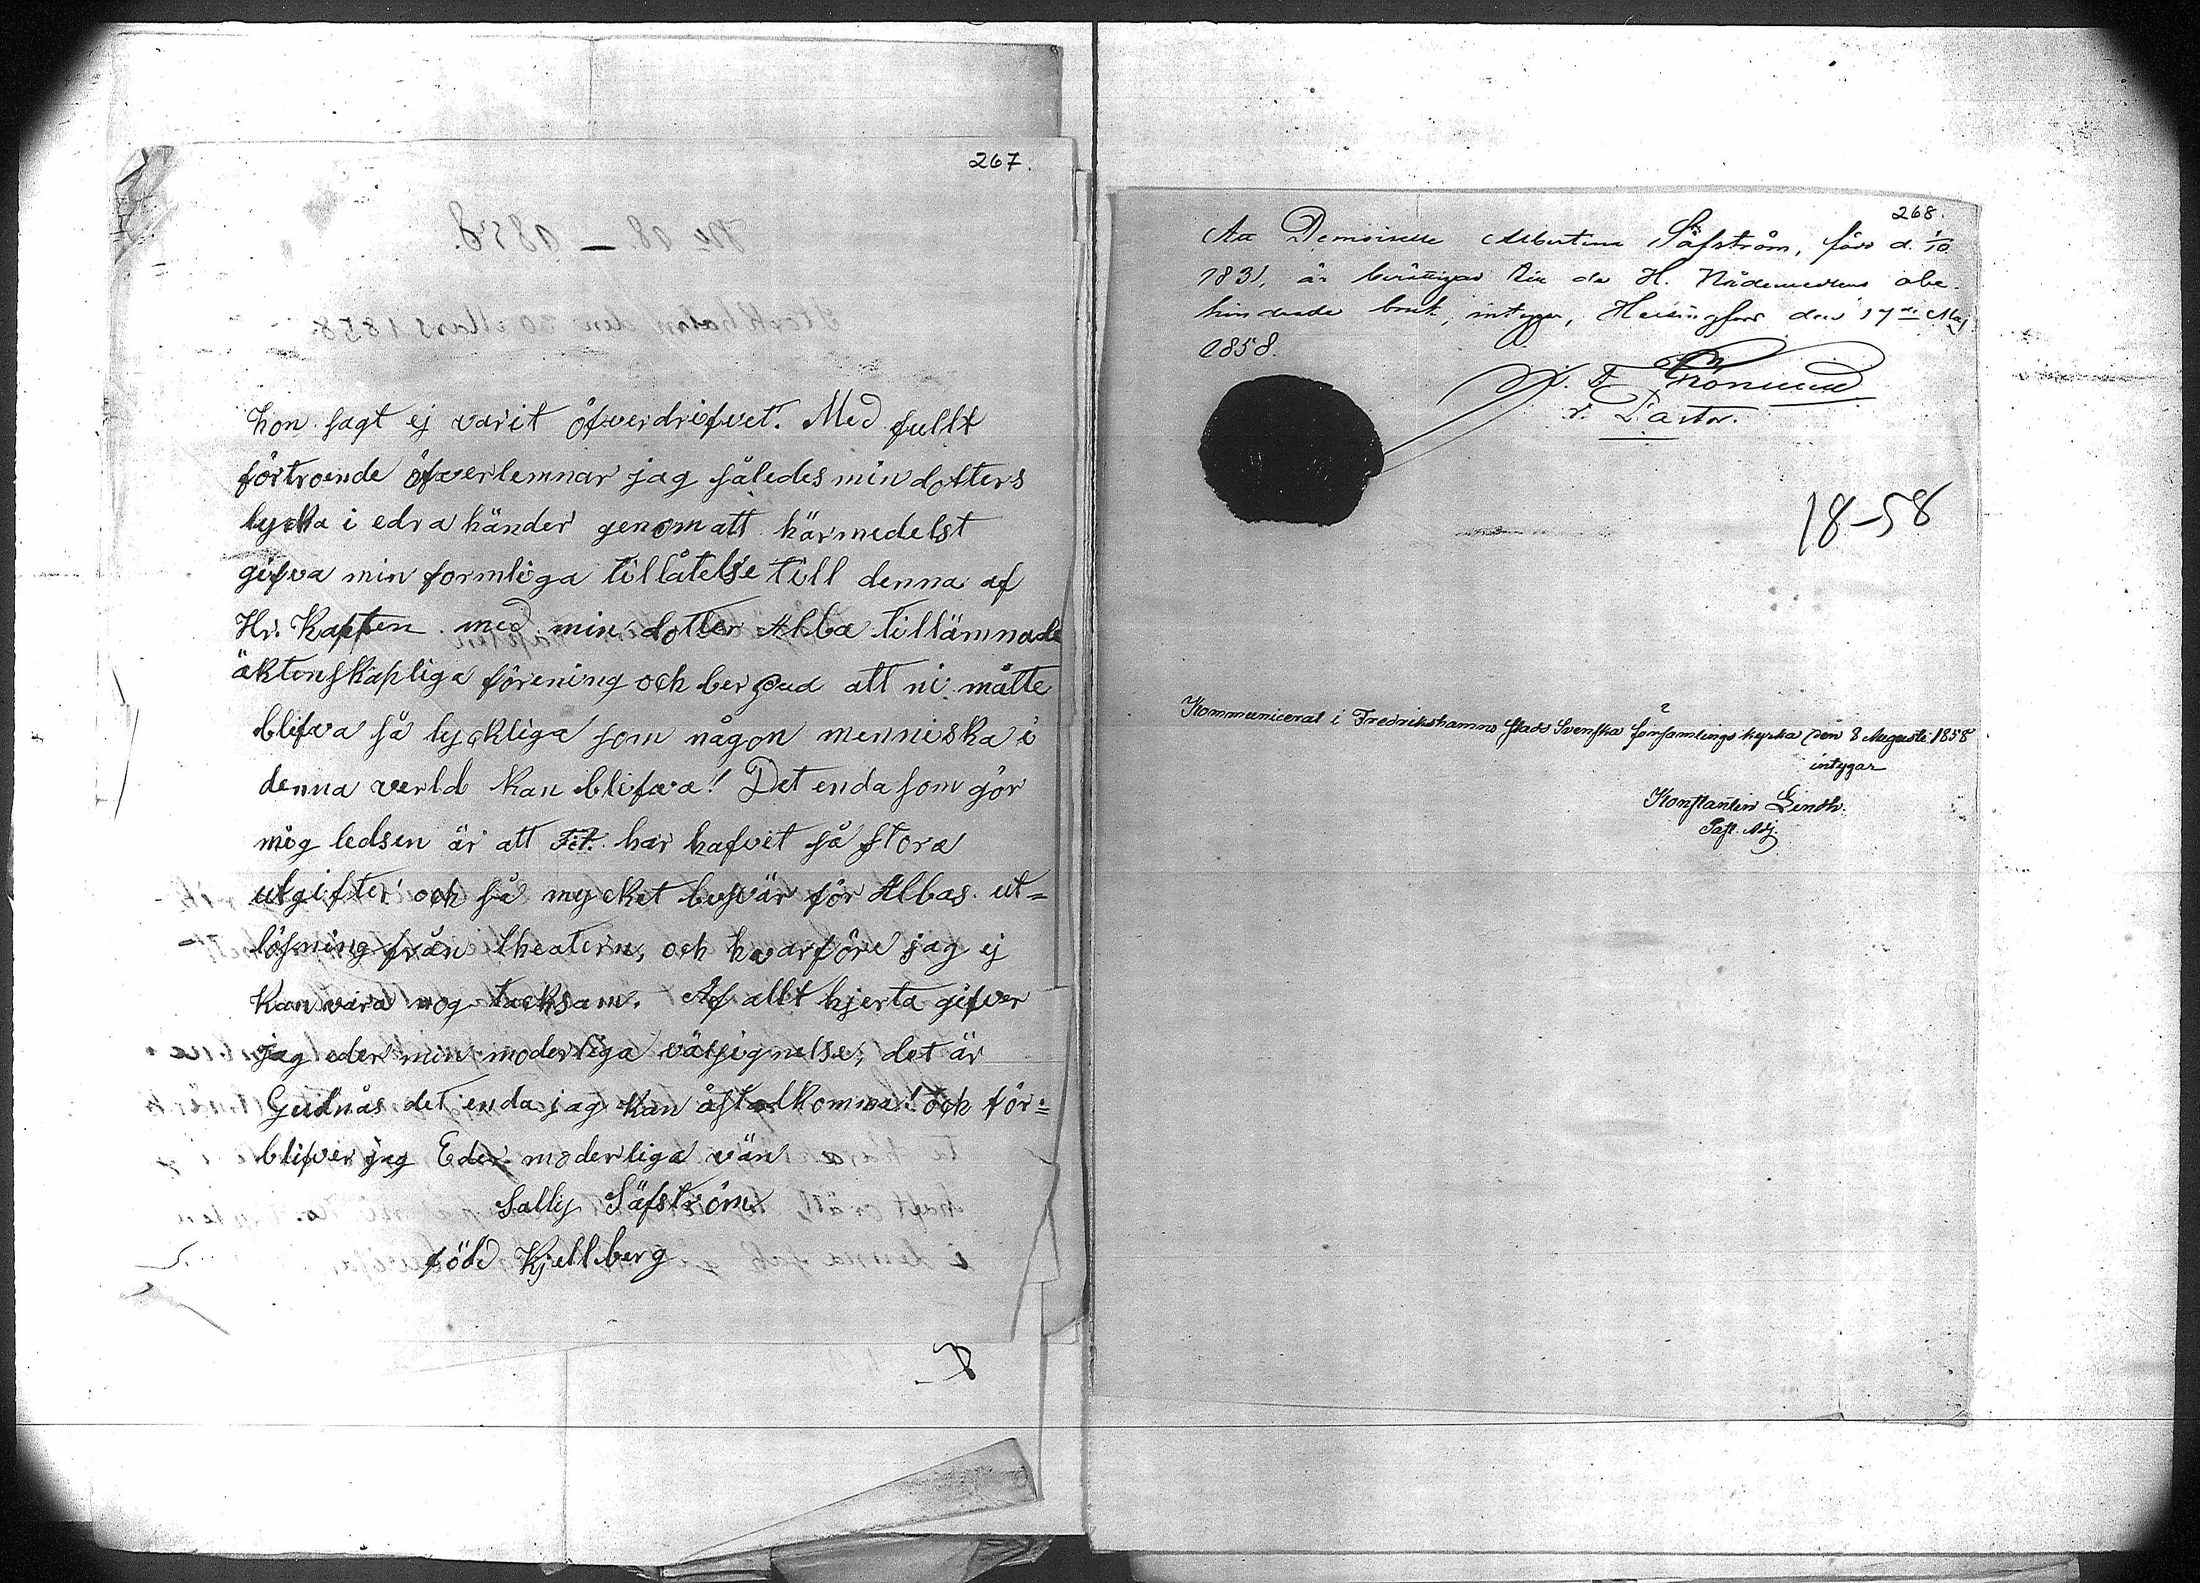 267.
hon sagt ej varit öfverdrifvet. Med fullt
förtroende öfverlemnar jag således min dotters
lycka i edra händer genom att härmedelst
gifva min formliga tillåtelse till denna af
Hr. Kapten med min dotter Alba tillämnade
äktenskapliga förening och ber Gud att ni måtte
blifva så lyckliga som någon menniska i
denna verld kan blifva! Det enda som gör
mig ledsen är att Tit. har hafvit så stora
utgifter och så mycket besvär för Albas ut=
lösning från theatern, och hvarföre jag ej
kan vara nog tacksam. Af allt hjerta gifver
jag eder min moderliga välsignelse, det är
Gudnås det enda jag kan åstadkomma! och för=
blifver jag Eder moderliga vän
Sally Säfström
född Kjellberg
268.
Att Demoiselle Albertina Säfström, född d. 1/10
1831, är berättigad till de H. Nådemedlens obe-
hindrade bruk, intygar, Helsingfors den 17de Maj
1858.
v. Pastor.
18-58
Kommunicerat i Fredrikshamns stads Svenska församlings kyrka den 8 Augusti 1858
intygar
Konstantin Lindh.
Past. Adj.